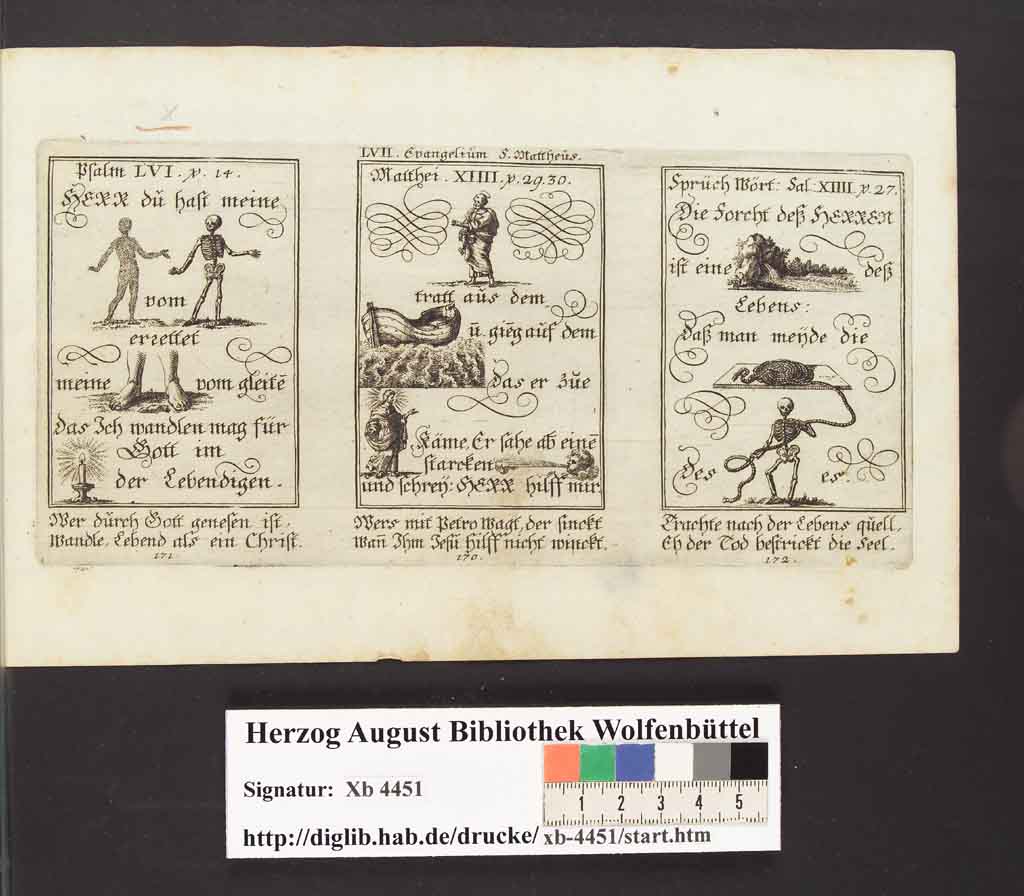 Psalm LVI. v. 14.
HERR dū hast meine
vom
errettet
meine vom gleitē
das Ich wandlen mag für
Gott im
der Lebendigen.
Wer dūrch Gott genesen ist,
Wandle, Lebend als ein Christ.
171.
LVII. Evangeliūm S. Mattheūs.
Matthei. XIIII. v. 29. 30.
tratt aūs dem
ū. giēg auf dem
das er Zūe
Käme, Er sahe ab einē
starcken
und schreÿ: HERR hilff mir
Wers mit Petro Wagt, der sinckt
Wañ Ihm Jesū hilff nicht winckt.
170.
Sprūch Wört: Sal: XIIII v. 27.
Die Forcht deß HERREN
ist eine deß
Lebens:
daß man meÿde die
des es.
Trachte nach der Lebens qūell,
Eh der Tod bestrickt die Seel.
172.
Herzog August Bibliothek Wolfenbüttel
Signatur: Xb 4451
1 2 3 4 5
http://diglib.hab.de/drucke/ xb-4451/start.htm